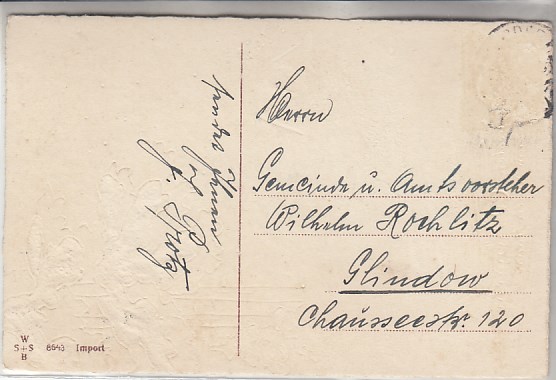 Herrn
Gemeinde u. Amtsvorsteher
Wilhelm Rochlitz
Glindow
Chausseestr. 120
sendet Ihnen
W
S+S
B
8643 Import